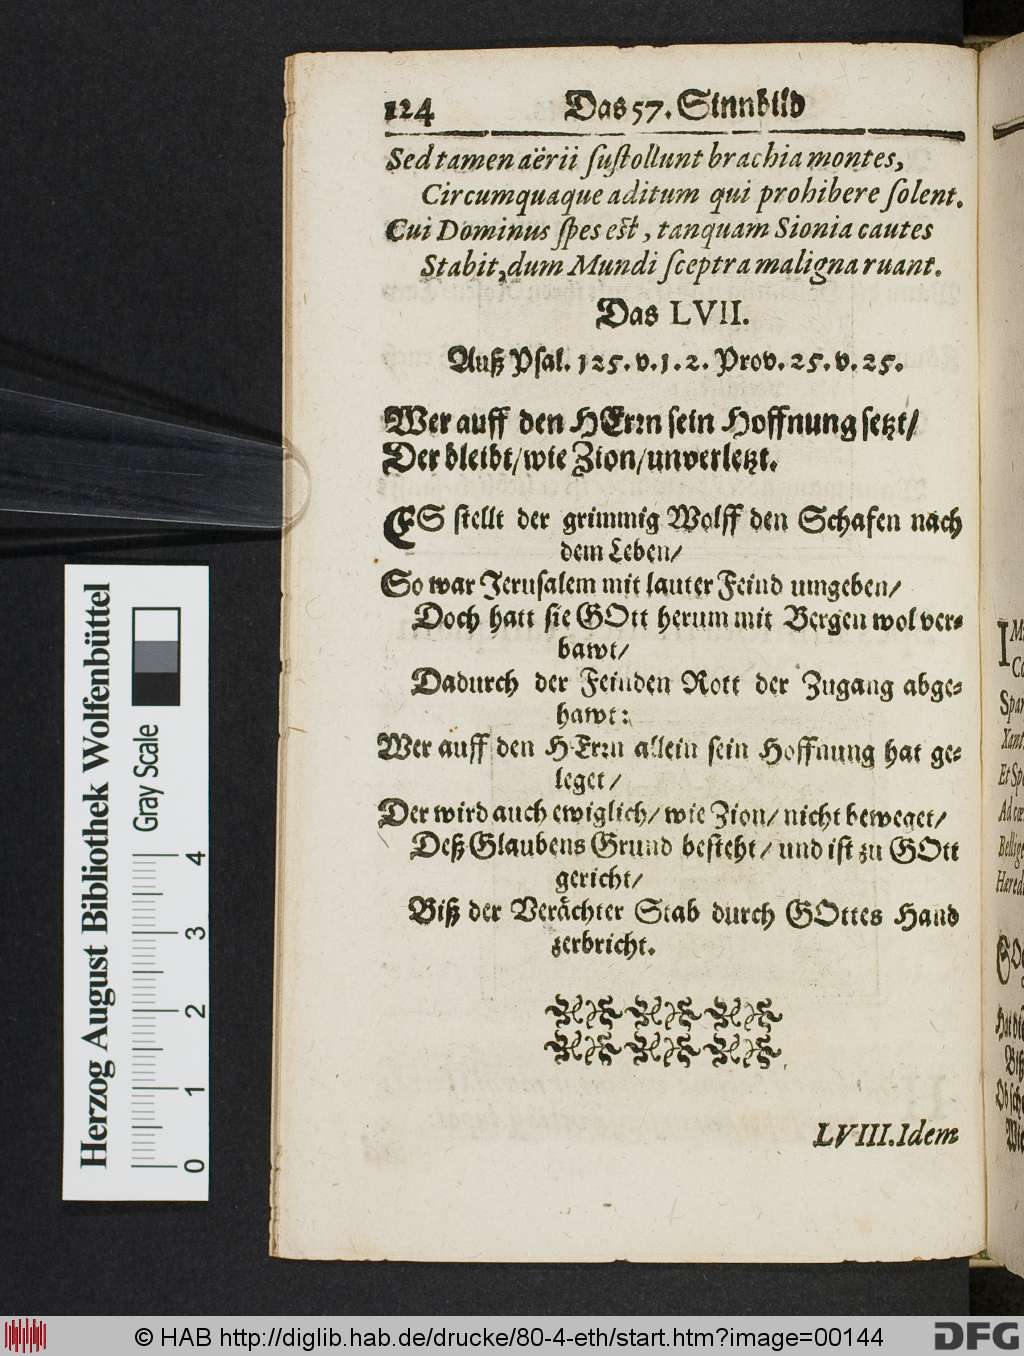 124 Das 57. Sinnbild
Sed tamen aërii ſuſtollunt brachia montes,
Circumquaque aditum qui prohibere ſolent.
Cui Dominus ſpes eſt, tanquam Sionia cautes
Stabit, dum Mundi ſceptra maligna ruant.
Das LVII.
Auß Pſal. 125. v. 1. 2. Prov. 25. v. 25.
Wer auff den HErrn ſein Hoffnung ſetzt/
Der bleibt/ wie Zion/ unverletzt.
ES ſtellt der grimmig Wolff den Schafen nach
dem Leben/
So war Jeruſalem mit lauter Feind umgeben/
Doch hatt ſie GOtt herum mit Bergen wol ver-
bawt/
Dadurch der Feinden Rott der Zugang abge-
hawt:
Wer auff den HErrn allein ſein Hoffnung hat ge-
leget/
Der wird auch ewiglich/ wie Zion/ nicht beweget/
Deß Glaubens Grund beſteht/ und iſt zu GOtt
gericht/
Biß der Verächter Stab durch GOttes Hand
zerbricht.
LVIII. Idem
Herzog August Bibliothek Wolfenbüttel
Gray Scale
0 1 2 3 4
© HAB http://diglib.hab.de/drucke/80-4-eth/start.htm?image=00144
DFG